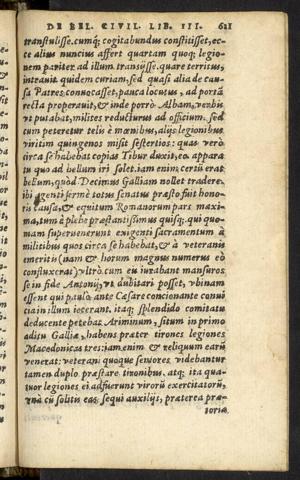 DE BEL. CIVIL. LIB. III. 621
transtulisse. cumq́; cogitabundus constitisset, ec-
ce alius nuncius affert quartam quoq; legio-
nem pariter ad illum transijsse. quare territus,
intrauit quidem curiam, sed quasi alia de cau-
sa Patres conuocasset, pauca locutus, ad portã
recta properauit, & inde porrò Albam, verbis
vt putabat, milites reducturus ad officium. sed
cum peteretur telis è mœnibus, alijs legionibus
viritim quingenos misit sestertios: quas verò
circa se habebat copias Tibur duxit, eo appara
tu quo ad bellum iri solet. iam enim certũ erat
bellum, quòd Decimus Galliam nollet tradere.
ibi agenti fermè totus senatus præsto fuit hono-
ris causa, & equitum Romanorum pars maxi-
ma, tum è plebe præstantissimus quisq; qui quo-
mam superuenerunt exigenti sacramentum à
militibus quos circa se habebat, & à veteranis
emeritis (nam & horum magnus numerus eò
confluxerat) vltrò cum eu iurabant mansuros
se in fide Antonij, vt dubitari posset, vbinam
essent qui paulò ante Cæsare concionante conui
cia in illum iecerant. itaq; splendido comitatu
deducente petebat Ariminum, situm in primo
aditu Galliæ, habens præter tirones legiones
Macedonicas tres: iam enim & reliquum earũ
venerat: veterani quoque seniores videbantur
tamen duplo præstare tironibus. atq; ita qua-
tuor legiones ei adfuerunt virorũ exercitatorũ,
vnà cũ solitis eas sequi auxilijs, præterea præ-
toria